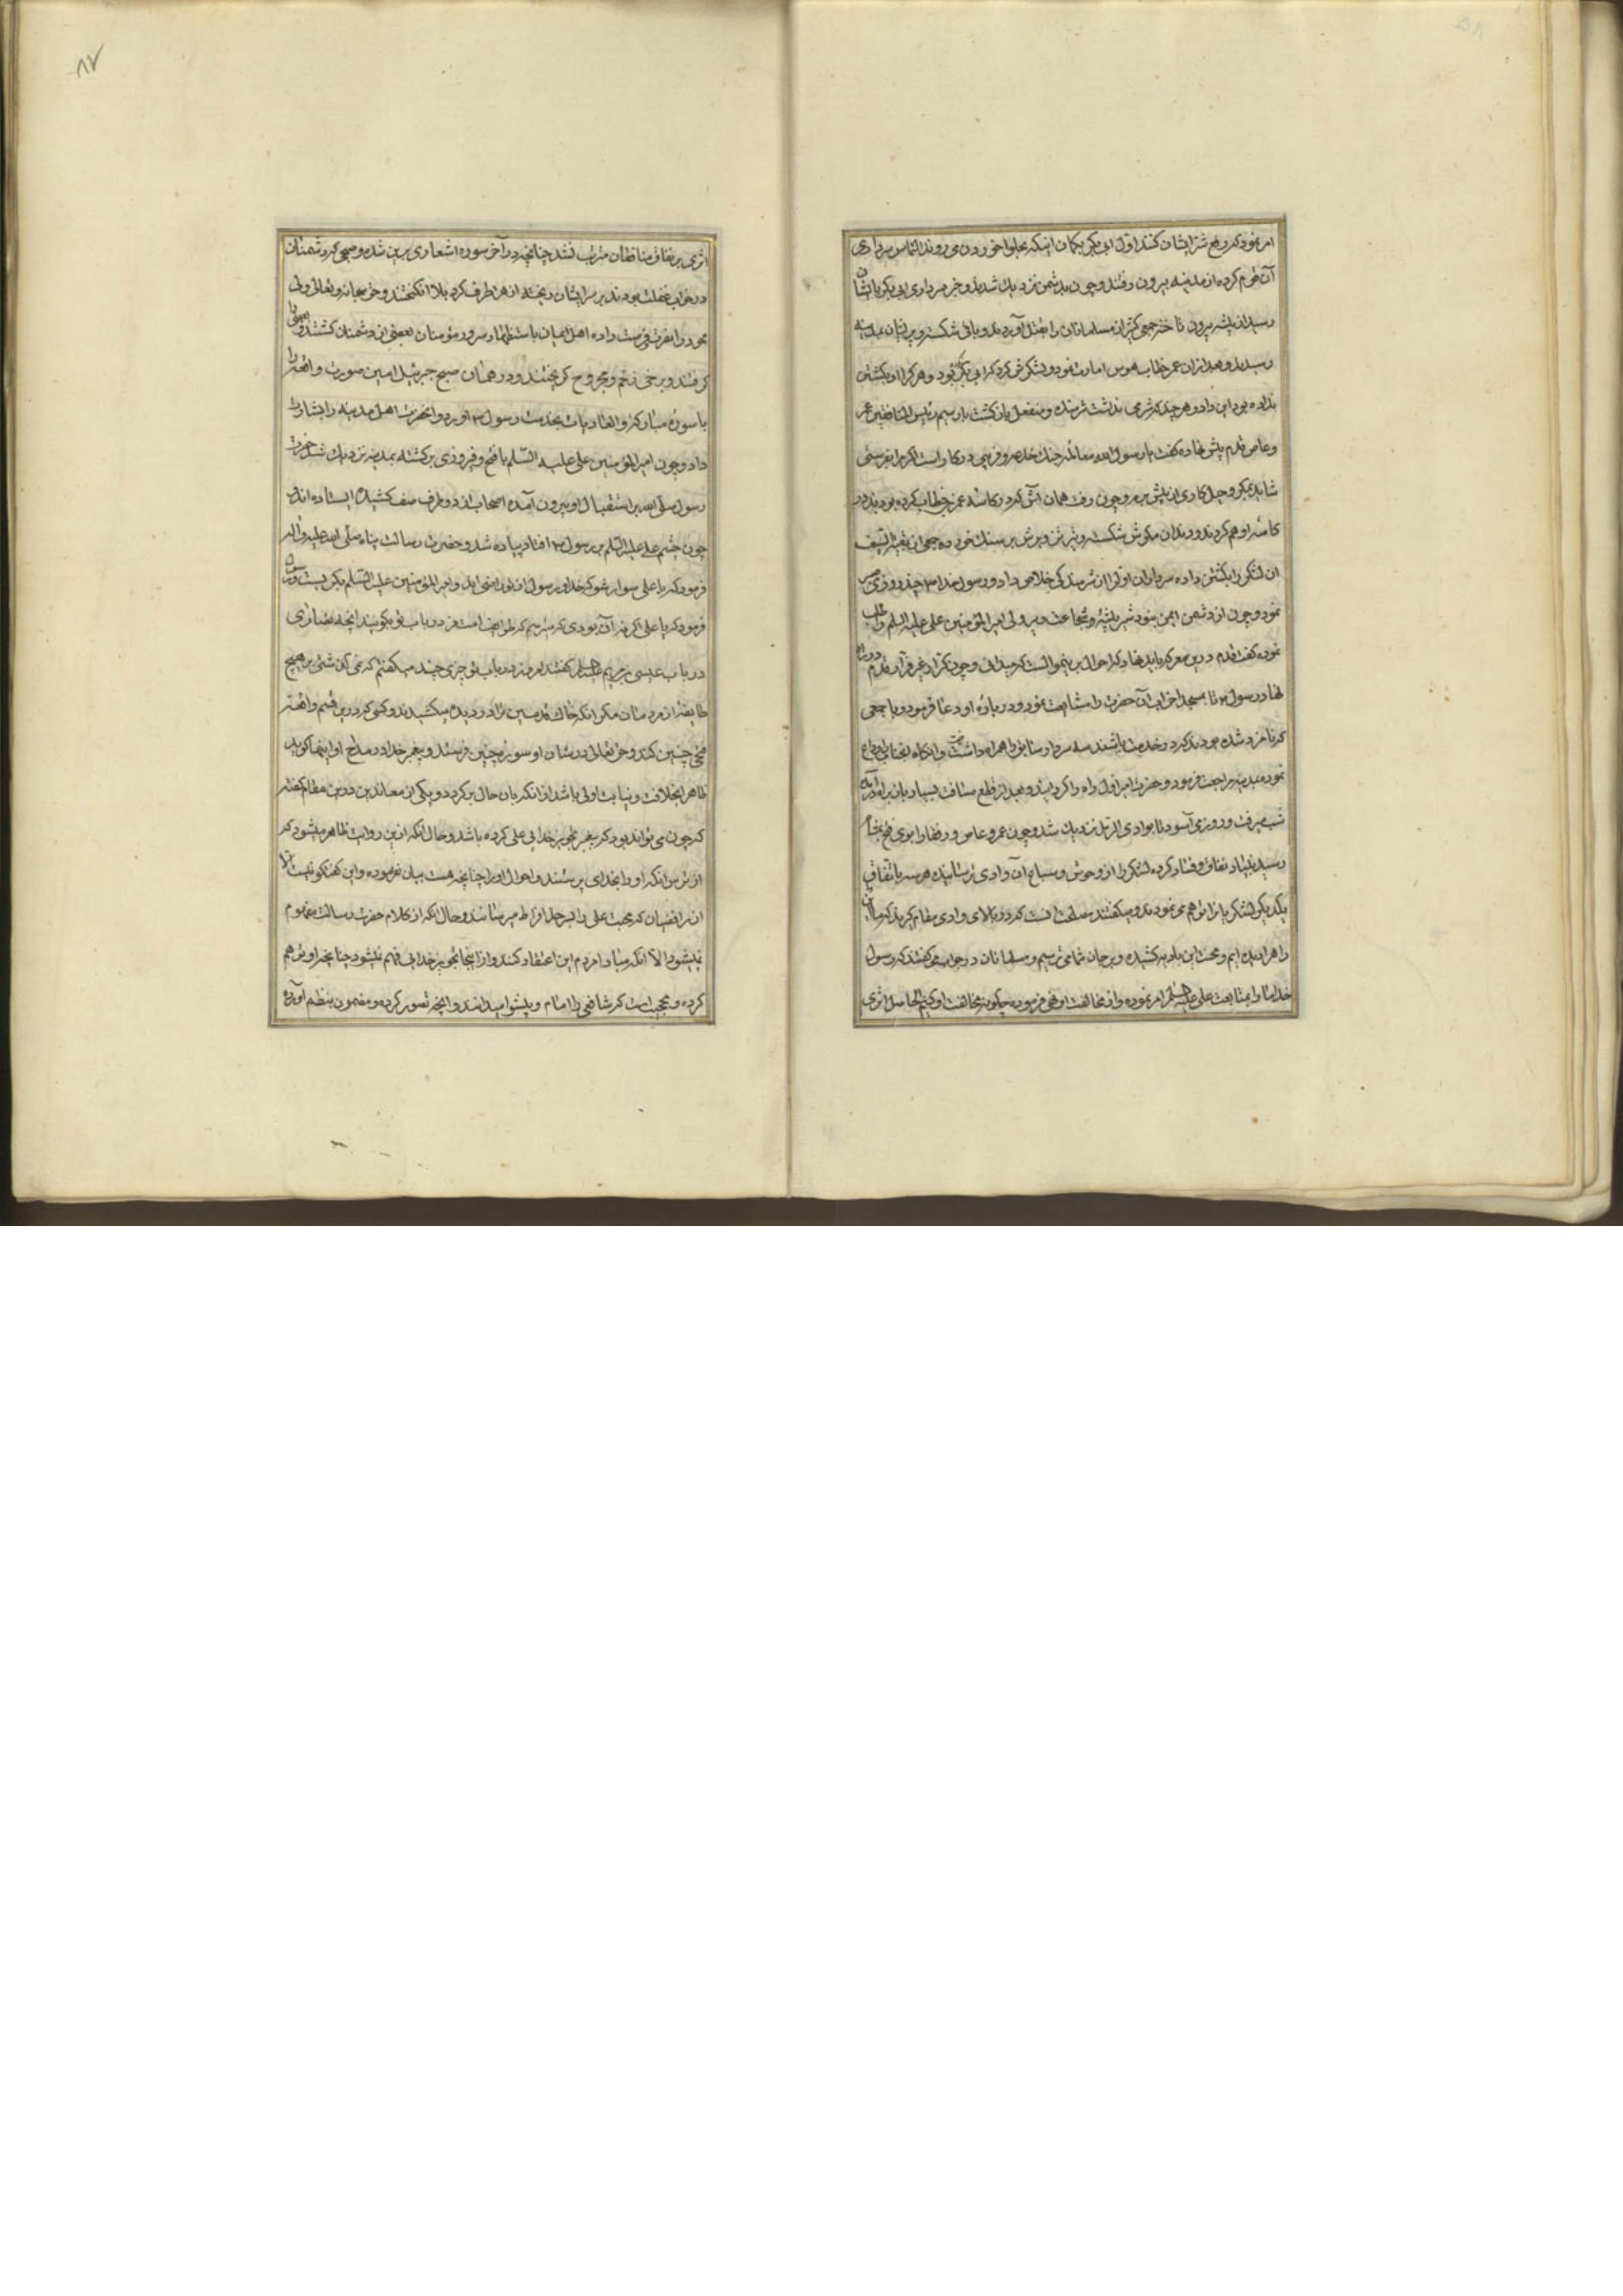 امر نمود که رفع شر ایشان کنند اول ابی بکر بکمان اینکه بحلوا خوردن می روند التماس سرداری
آن قوم کرده از مدینه بیرون رفتند و چون بدشمن نزدیك شدند و خبر سرداری ابی بکر بایشان
رسید از بیشه بیرون تاخته جمعی کثیر از مسلمانان را بقتل آوردند و باقی شکسته و پریشان بمدینه
رسیدند و بعد از ان عمر خطاب هوس امارت نمود و لشکرش کرد که ابی بکر بود و هر کرا او بکشتن
نداده بود این داد و هر چند که شرمی نداشت شرمنده و منفعل بازکشت بار سیم رئیس المنافقین عمر
و عاص قدم پیش نهاده کفت یا رسول الله معامله جنك خدعه و فریبی درکار است اکر مرا بفرستی
شاید بمکر و حیل کاری از پیش برم و چون رفت همان آش که در کاسه عمر خطاب کرده بودند در
کاسه او هم کردند و دندان مکرش شکسته و تیر تزویرش بر سنك خورده جمعی از بقیة السیف
ان لشکر را بکشتن داده سرداران اول را از شرمندکی خلاص داد و رسول خدا ۳ چند روزی صبر
نمود و چون از دشمن ایمن نبود شیر بیشه شجاعت و پیر ولی امیر المؤمنین علی علیه السلم را طلب
نموده کفت قدم درین معرکه باید نهاد که احوال برین منوالست که میدانی و چون کرار غیر فرار قدم در راه
نهاد رسول ۳ تا بمسجد احزاب آن حضرت را مشایعت نمود و درباره او دعا فرمود و با جمعی
که نامزد شده بودند که در خدمت باشند سه سردار سابق را همراه داشت و آنکاه آنجناب را وداع
نموده بمدینه مراجعت فرمود و حضرت امیر اول راه را کردانید و بعد از قطع مسافت بسیار بان راه درآمده
شب میرفت و روز می آسود تا بوادی الرمل نزدیك شد و چون عمرو عاص و رفقا را بوی فتح بمشام
رسید بنیاد نفاق و فساد کرده لشکر را از وحوش و سباع آن وادی ترسانیده هر سه باتفاق
یکدیکر لشکر یانرا توهم می نمودند و میکفتند مصلحت انست که در بالای وادی مقام کیرید که ما این
راه را دیده ایم و محنت این بادیه کشیده و بر جان شما می ترسیم و مسلمانان در جواب می کفتند که رسول
خدا ما را بمتابعت علی علیه السلم امر نموده و از مخالفت او نهی فرموده چکونه مخالفت او کنیم الحاصل اثری
۸۷
اثری بر نفاق منافقان مترتب نشد چنانچه در آخر سوره اشعاری برین شده و صبحی که دشمنان
در خواب غفلت بودند بر سر ایشان ریخته از هر طرف کرد بلا انکیختند و حق سبحانه و تعالی ولی
خود را نصرت فرصت داده اهل ایمان باستظهار سرور مؤمنان بعضی از دشمنان کشتند و بعضی را
کرفتند و برخی زخم و مجروح کریختند و در همان صبح جبرئیل امین صورت واقعه را
با سوره مبارکه و العادیات بخدمت رسول ۳ آورد و آنحضرت اهل مدینه را بشارت
داد و چون امیر المؤمنین علی علیه السلم با فتح و فیروزی برکشته بمدینه نزدیك شد حضرت
رسول صلی الله باستقبال او بیرون آمده اصحاب از دو طرف صف کشیده ایستاده اند
چون چشم علی علیه السلم بر رسول ۳ افتاد پیاده شد و حضرت رسالت پناه صلی الله علیه و آله
فرمود که یا علی سوار شو که خدا و رسول از تو راضی اند و امیر المؤمنین علیه السلم بکریست و رسول
فرمود که یا علی اکر نه آن بودی که میترسم که طوایف امت من در باب تو بکویند آنچه نصاری
در باب عیسی بن مریم علیه السلم کفتند امروز در باب تو چیزی چند میکفتم که نمی کذشتی بر هیچ
طایفه از مردمان مکر انکه خاك قدمت را در دیده میکشیدند و کسی که درین قسم واقعه
فتحی چنین کند و حق تعالی در شان او سوره چنین فرستد و پیغمبر خدا در مدح او اینها کوید
ظاهرا بخلافت و نیابت اولی باشد از انکه بان حال برکردد و یکی از معاندین درین مقام کفته
که چون می تواند بود که پیغمبر تجویز خدایی علی کرده باشد و حال انکه ازین روایت ظاهر میشود که
از ترس انکه او را بخدای پرستند احوال او را چنانچه هست بیان نفرموده و این کفتکو نیست الا
از رافضیان که محبت علی را بسر حد افراط میرسانند و حال انکه از کلام حضرت رسالت مفهوم
نمیشود الا انکه مبادا مردم این اعتقاد کنند و از اینجا تجویز خدایی فهم نمیشود چنانچه او توهم
کرده و عجبست که شافعی را امام و پیشوا میدانند و انچه تصور کرده و مضمون بنظم آورده